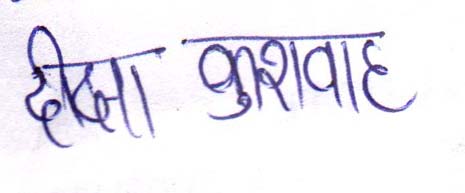 दीक्षा कुशवाह